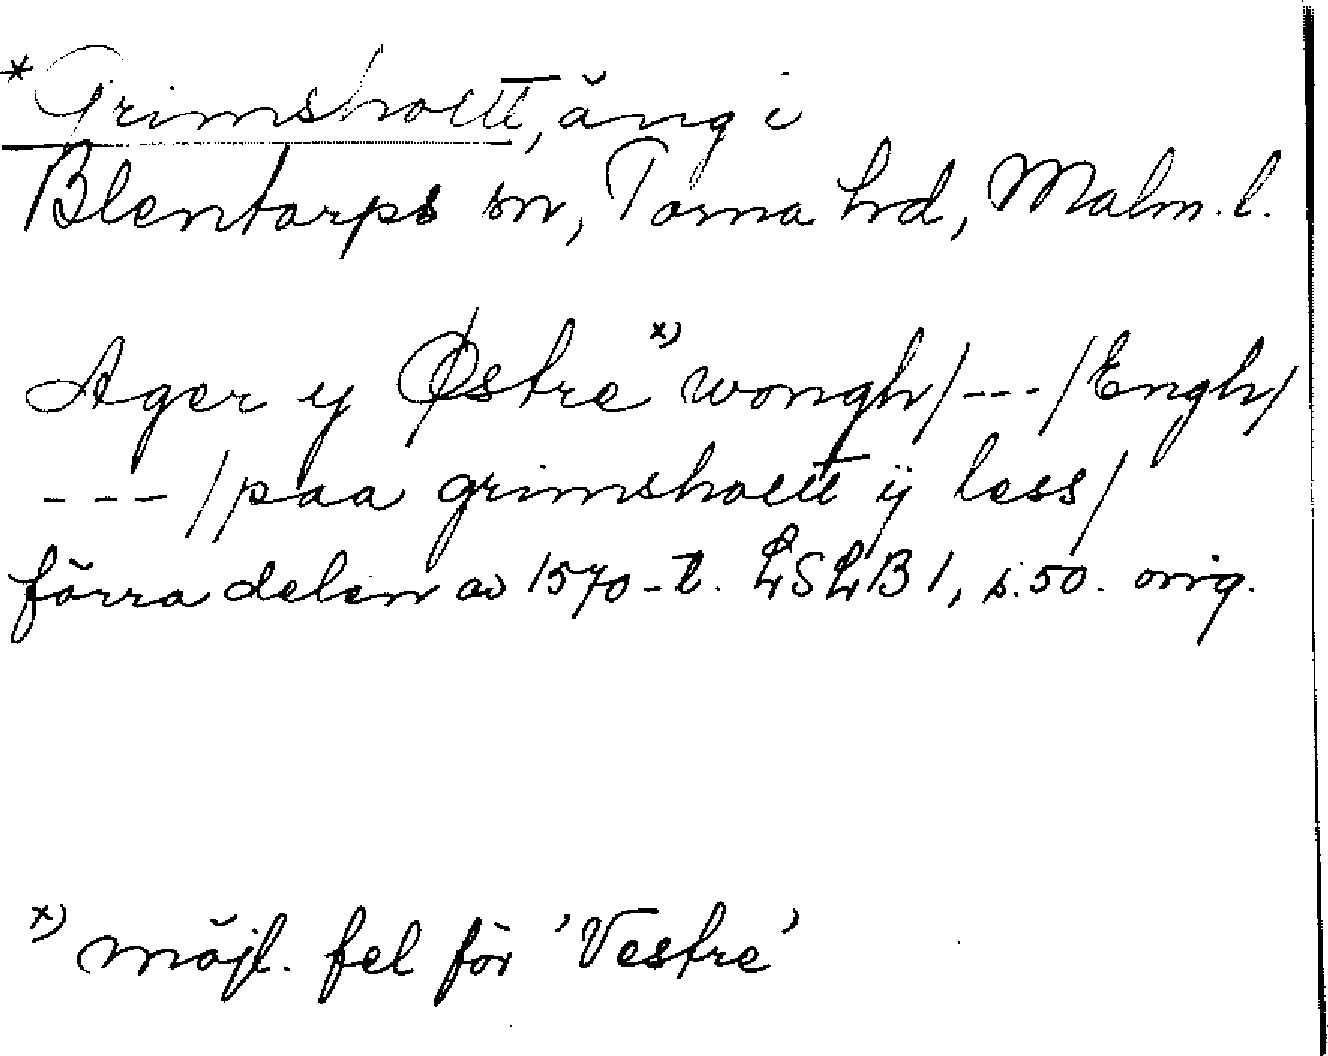 *Grimshoett, äng i
Blentarps sn, Torna hd, Malm. l.
Ager y Østre x) wongh/---/Engh/
---/paa grimshoett ij less/
förra delen av 1570-t. LSLB 1, s. 50. orig.
x) möjl. fel för 'Vestre'